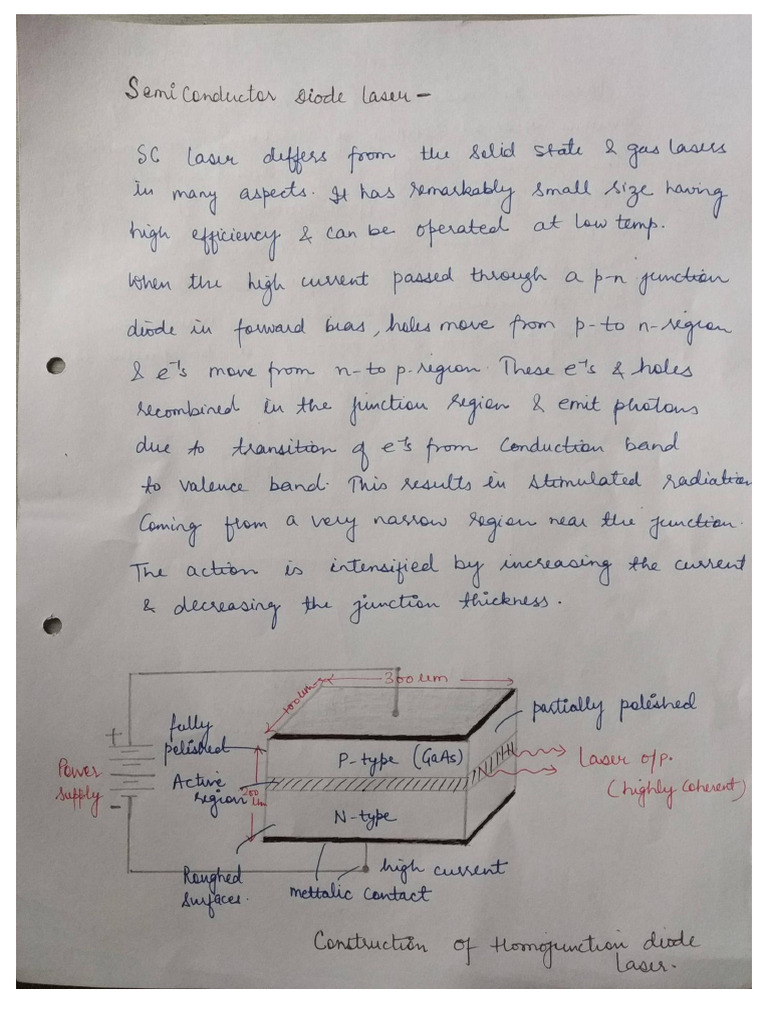 Semi Conductor Diode Laser -
SC laser differs from the solid state & gas lasers
in many aspects. It has remarkably small size having
high efficiency & can be operated at low temp.
When the high current passed through a p-n junction
diode in forward bias, holes move from p- to n-region
& e⁻s move from n- to p-region. These e⁻s & holes
recombined in the junction region & emit photons
due to transition of e⁻s from Conduction band
to valence band. This results in stimulated radiation
Coming from a very narrow region near the junction.
The action is intensified by increasing the current
& decreasing the junction thickness.
300 um
100um
partially polished
fully
polished
+
P-type (GaAs)
Laser o/p.
(highly Coherent)
Power
supply
Active
region
200
um
-
N-type
Roughed
surfaces.
mettalic contact
high current
Construction of Homojunction diode
Laser.